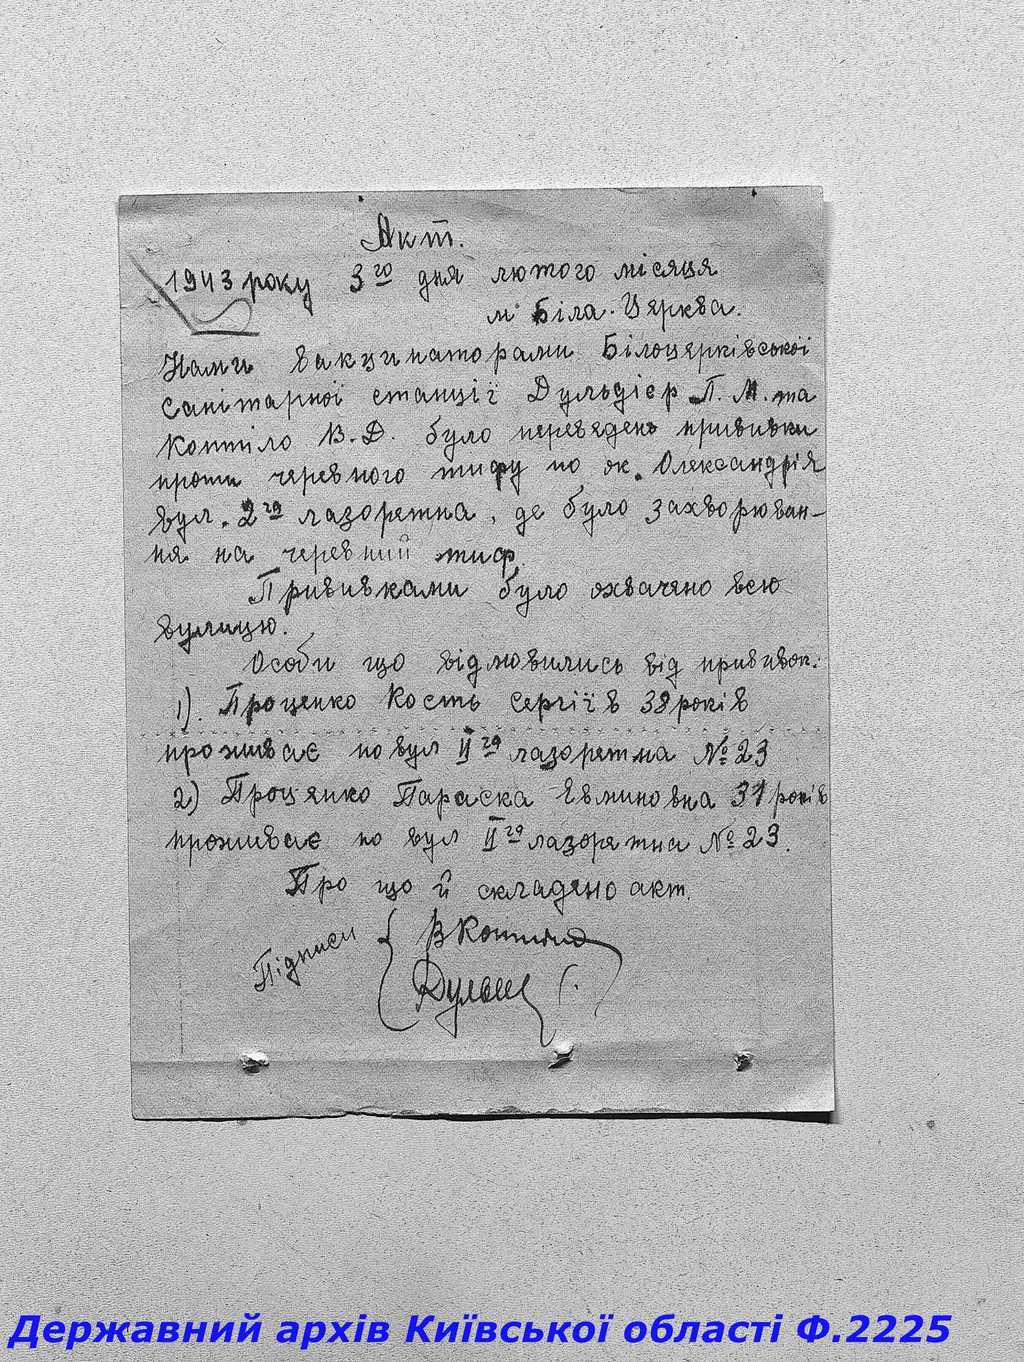 Акт.
1943 року 3го дня лютого місяця
м. Біла-Церква.
Нами вакцинаторами Білоцерківської
санітарної станції Дульдієр П. М. та
Коптіло В.Д. було переведено прививки
проти черевного тифу по ок. Олександрія
вул. 2га лазоретна, де було захворюван-
ня на черевний тиф.
Прививками було охвачено всю
вулицю.
Особи що відмовились від прививок:
1). Проценко Кость Сергіїв 38 років
проживає по вул IIга лазоретна № 23
2) Проценко Параска Евминовна 37 років
проживає по вул IIга лазоретна № 23.
Про що й складено акт.
Підписи
В Коптіло
Державний архів Київської області Ф.2225